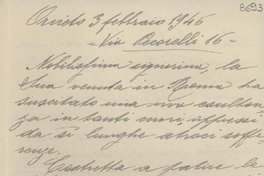 8693
Orvieto 3 febbraio 1946
Via Pecorelli 16 -
Nobilissima signorina, la
Sua venuta in Roma ha
suscitato una viva esultan
za in tanti cuori, oppressi
da sì lunghe atroci soffe
renze.
Costretta a patire le